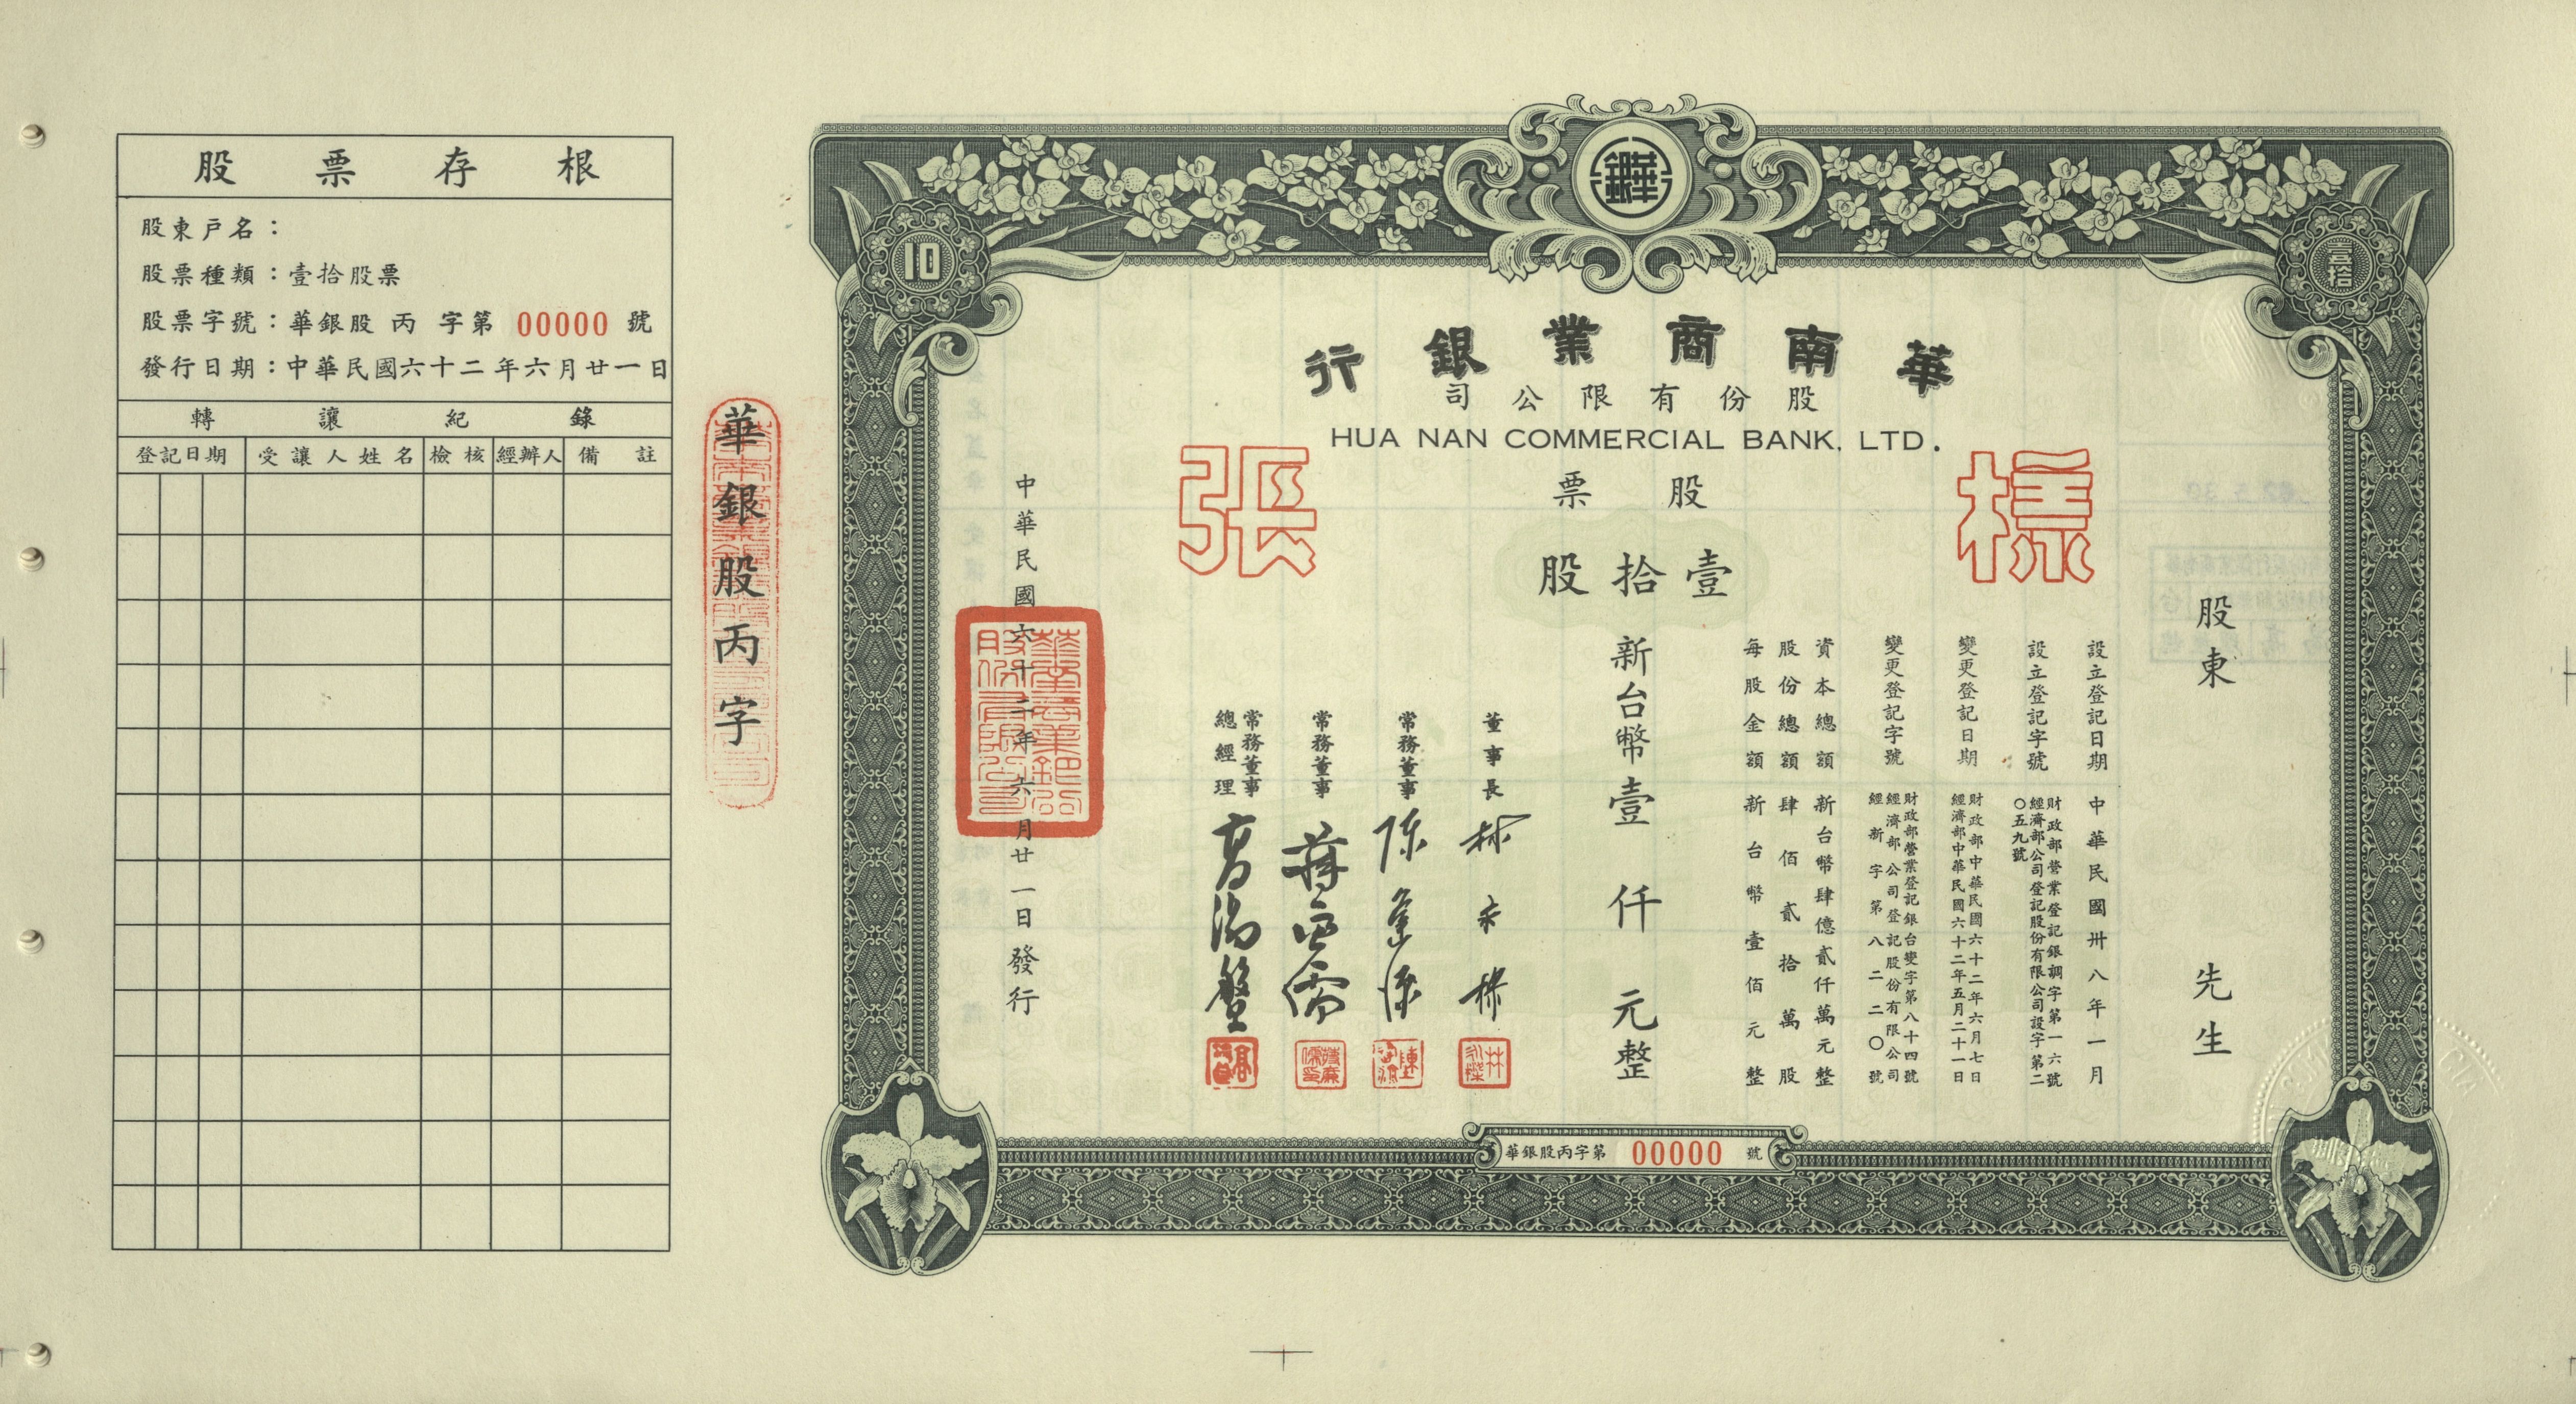 股票存根
股東戶名：
股票種類：壹拾股票
股票字號：華銀股 丙 字第 00000 號
發行日期：中華民國六十二年六月廿一日
轉讓紀錄
登記日期 受讓人姓名 檢核 經辦人 備註
華銀股丙字
10
壹拾
華南商業銀行
股份有限公司
HUA NAN COMMERCIAL BANK, LTD.
樣張
股票
壹拾股
股東 先生
設立登記日期 中華民國卅八年一月
設立登記字號 財政部營業登記銀調字第一六號
經濟部公司登記股份有限公司設字第二
〇五九號
變更登記日期 財政部中華民國六十二年六月七日
經濟部中華民國六十二年五月二十一日
變更登記字號 財政部營業登記銀台變字第八十四號
經濟部公司登記股份有限公司
經新字第八二二〇號
資本總額 新台幣肆億貳仟萬元整
股份總額 肆佰貳拾萬股
每股金額 新台幣壹佰元整
新台幣壹仟元整
董事長
常務董事
常務董事
常務董事
總經理
中華民國六十二年六月廿一日發行
華銀股丙字第 00000 號